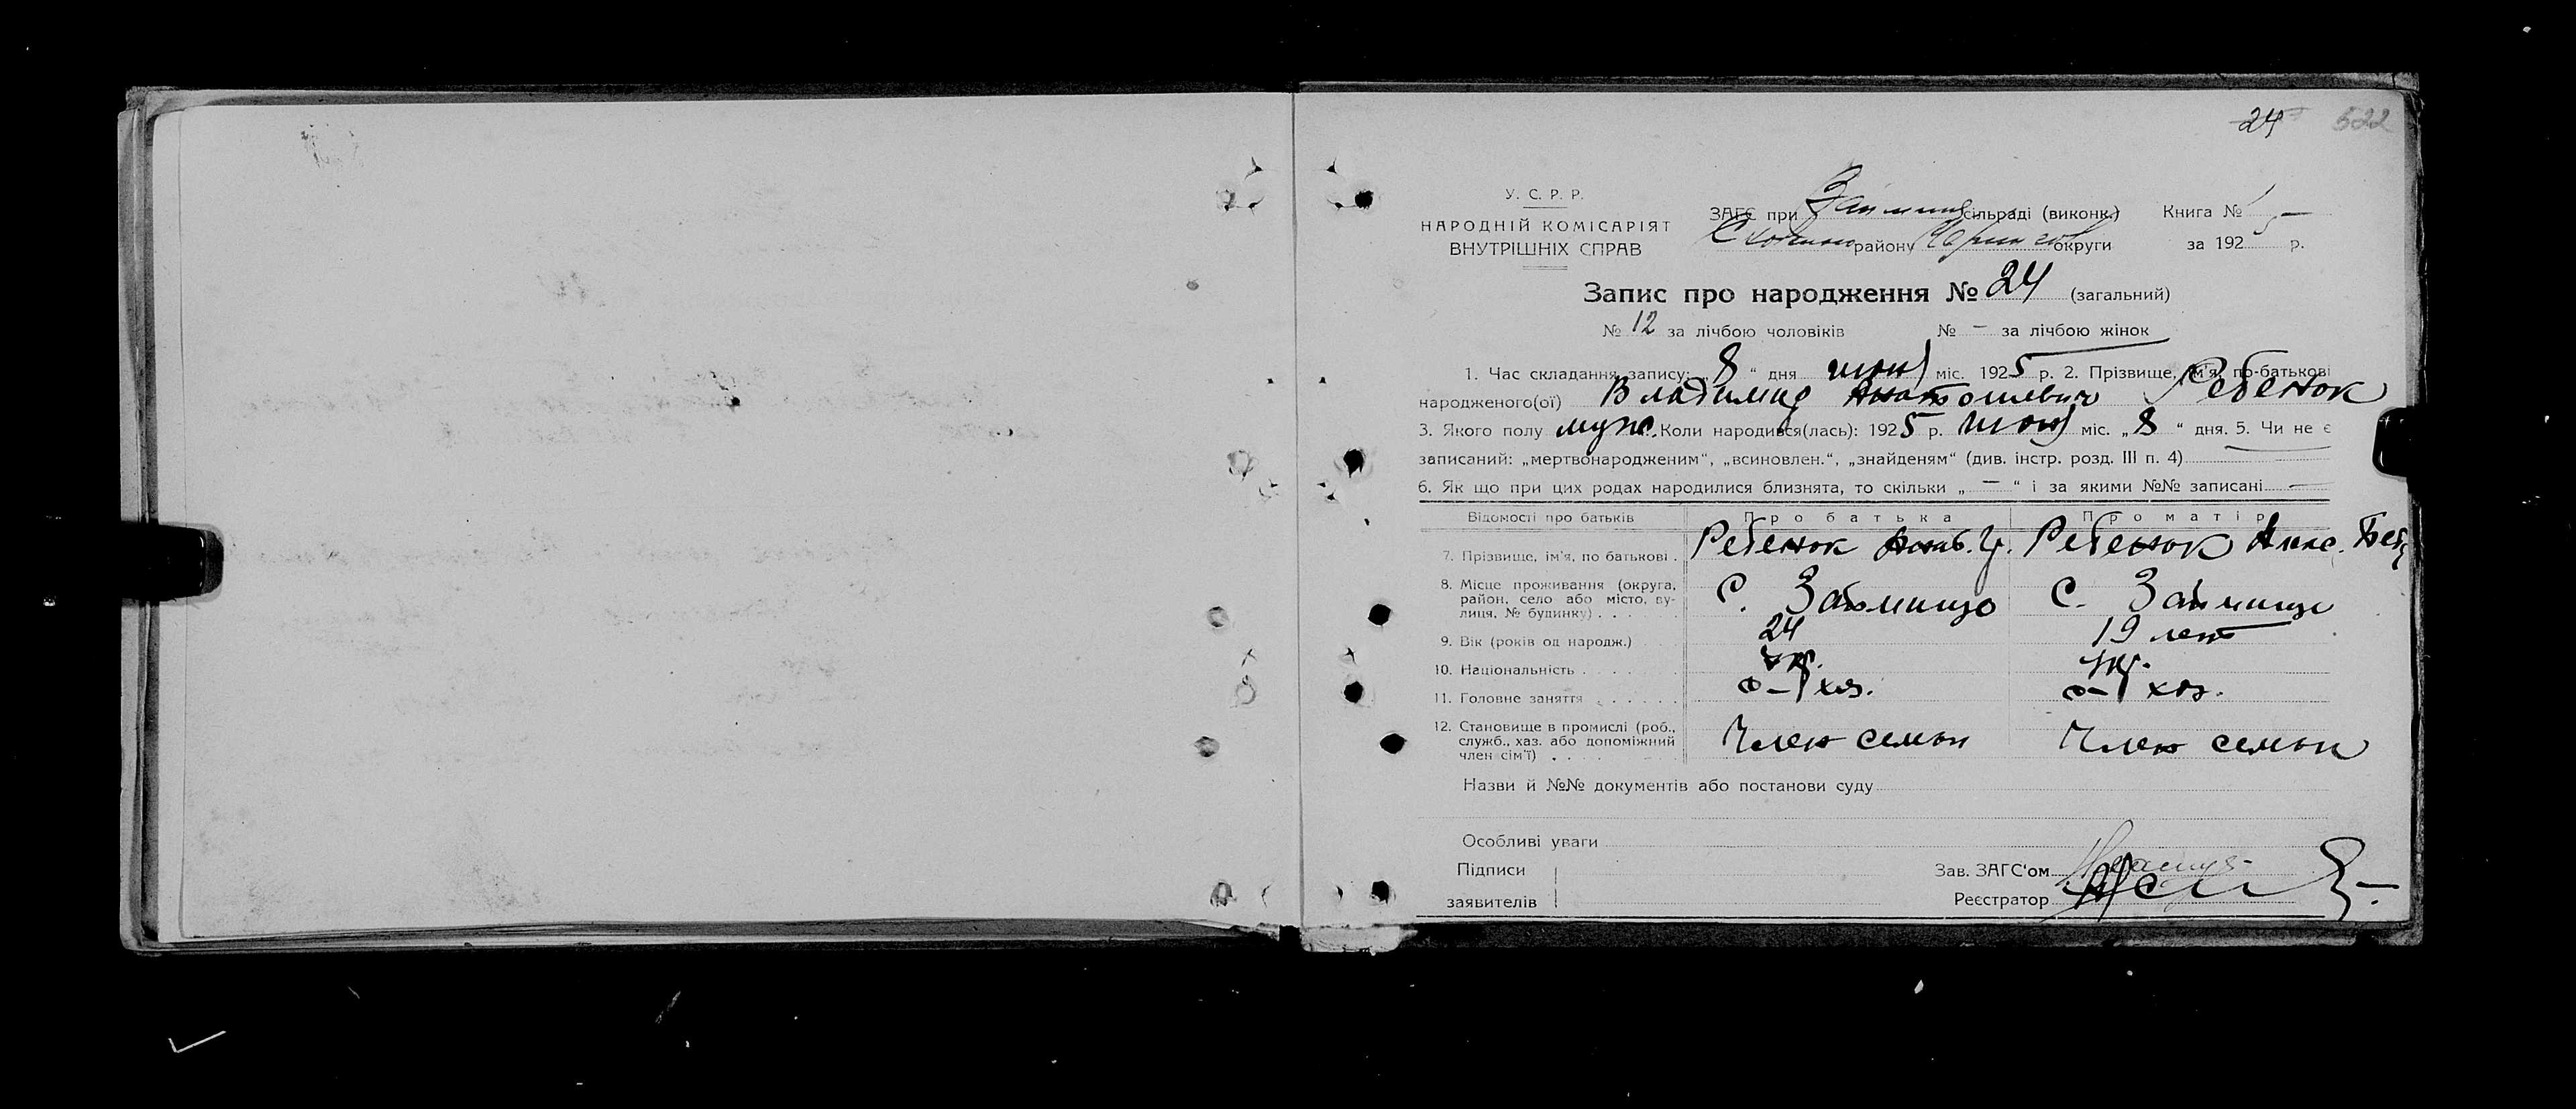 24 522
У. С. Р. Р.
НАРОДНІЙ КОМІСАРІЯТ
ВНУТРІШНІХ СПРАВ
ЗАГС при сільраді (виконк.) Книга №
району округи за 1925 р.
Запис про народження № 24 (загальний)
№ 12 за лічбою чоловіків № – за лічбою жінок
1. Час складання запису: „8“ дня июня міс. 1925 р. 2. Прізвище, ім'я, по-батькові
народженого(ої) Владимир Ребенок
3. Якого полу муж. Коли народився(лась): 1925 р. июня міс. „8“ дня. 5. Чи не є
записаний: „мертвонародженим“, „всиновлен.“, „знайденям“ (див. інстр. розд. III п. 4)
6. Як що при цих родах народилися близнята, то скільки „—“ і за якими №№ записані —
Відомості про батьків Про батька Про матір
7. Прізвище, ім'я, по батькові . Ребенок Ребенок
8. Місце проживання (округа, район, село або місто, вулиця, № будинку) . . . . С. Займище С. Займище
9. Вік (років од народж.) 24 19 лет
10. Національність . . . . . укр. укр.
11. Головне заняття . . . . . . с-хоз. с-хоз.
12. Становище в промислі (роб., служб., хаз. або допоміжний член сім'ї) . . . . Член семьи Член семьи
Назви й №№ документів або постанови суду
Особливі уваги
Підписи
заявителів
Зав. ЗАГС'ом
Реєстратор